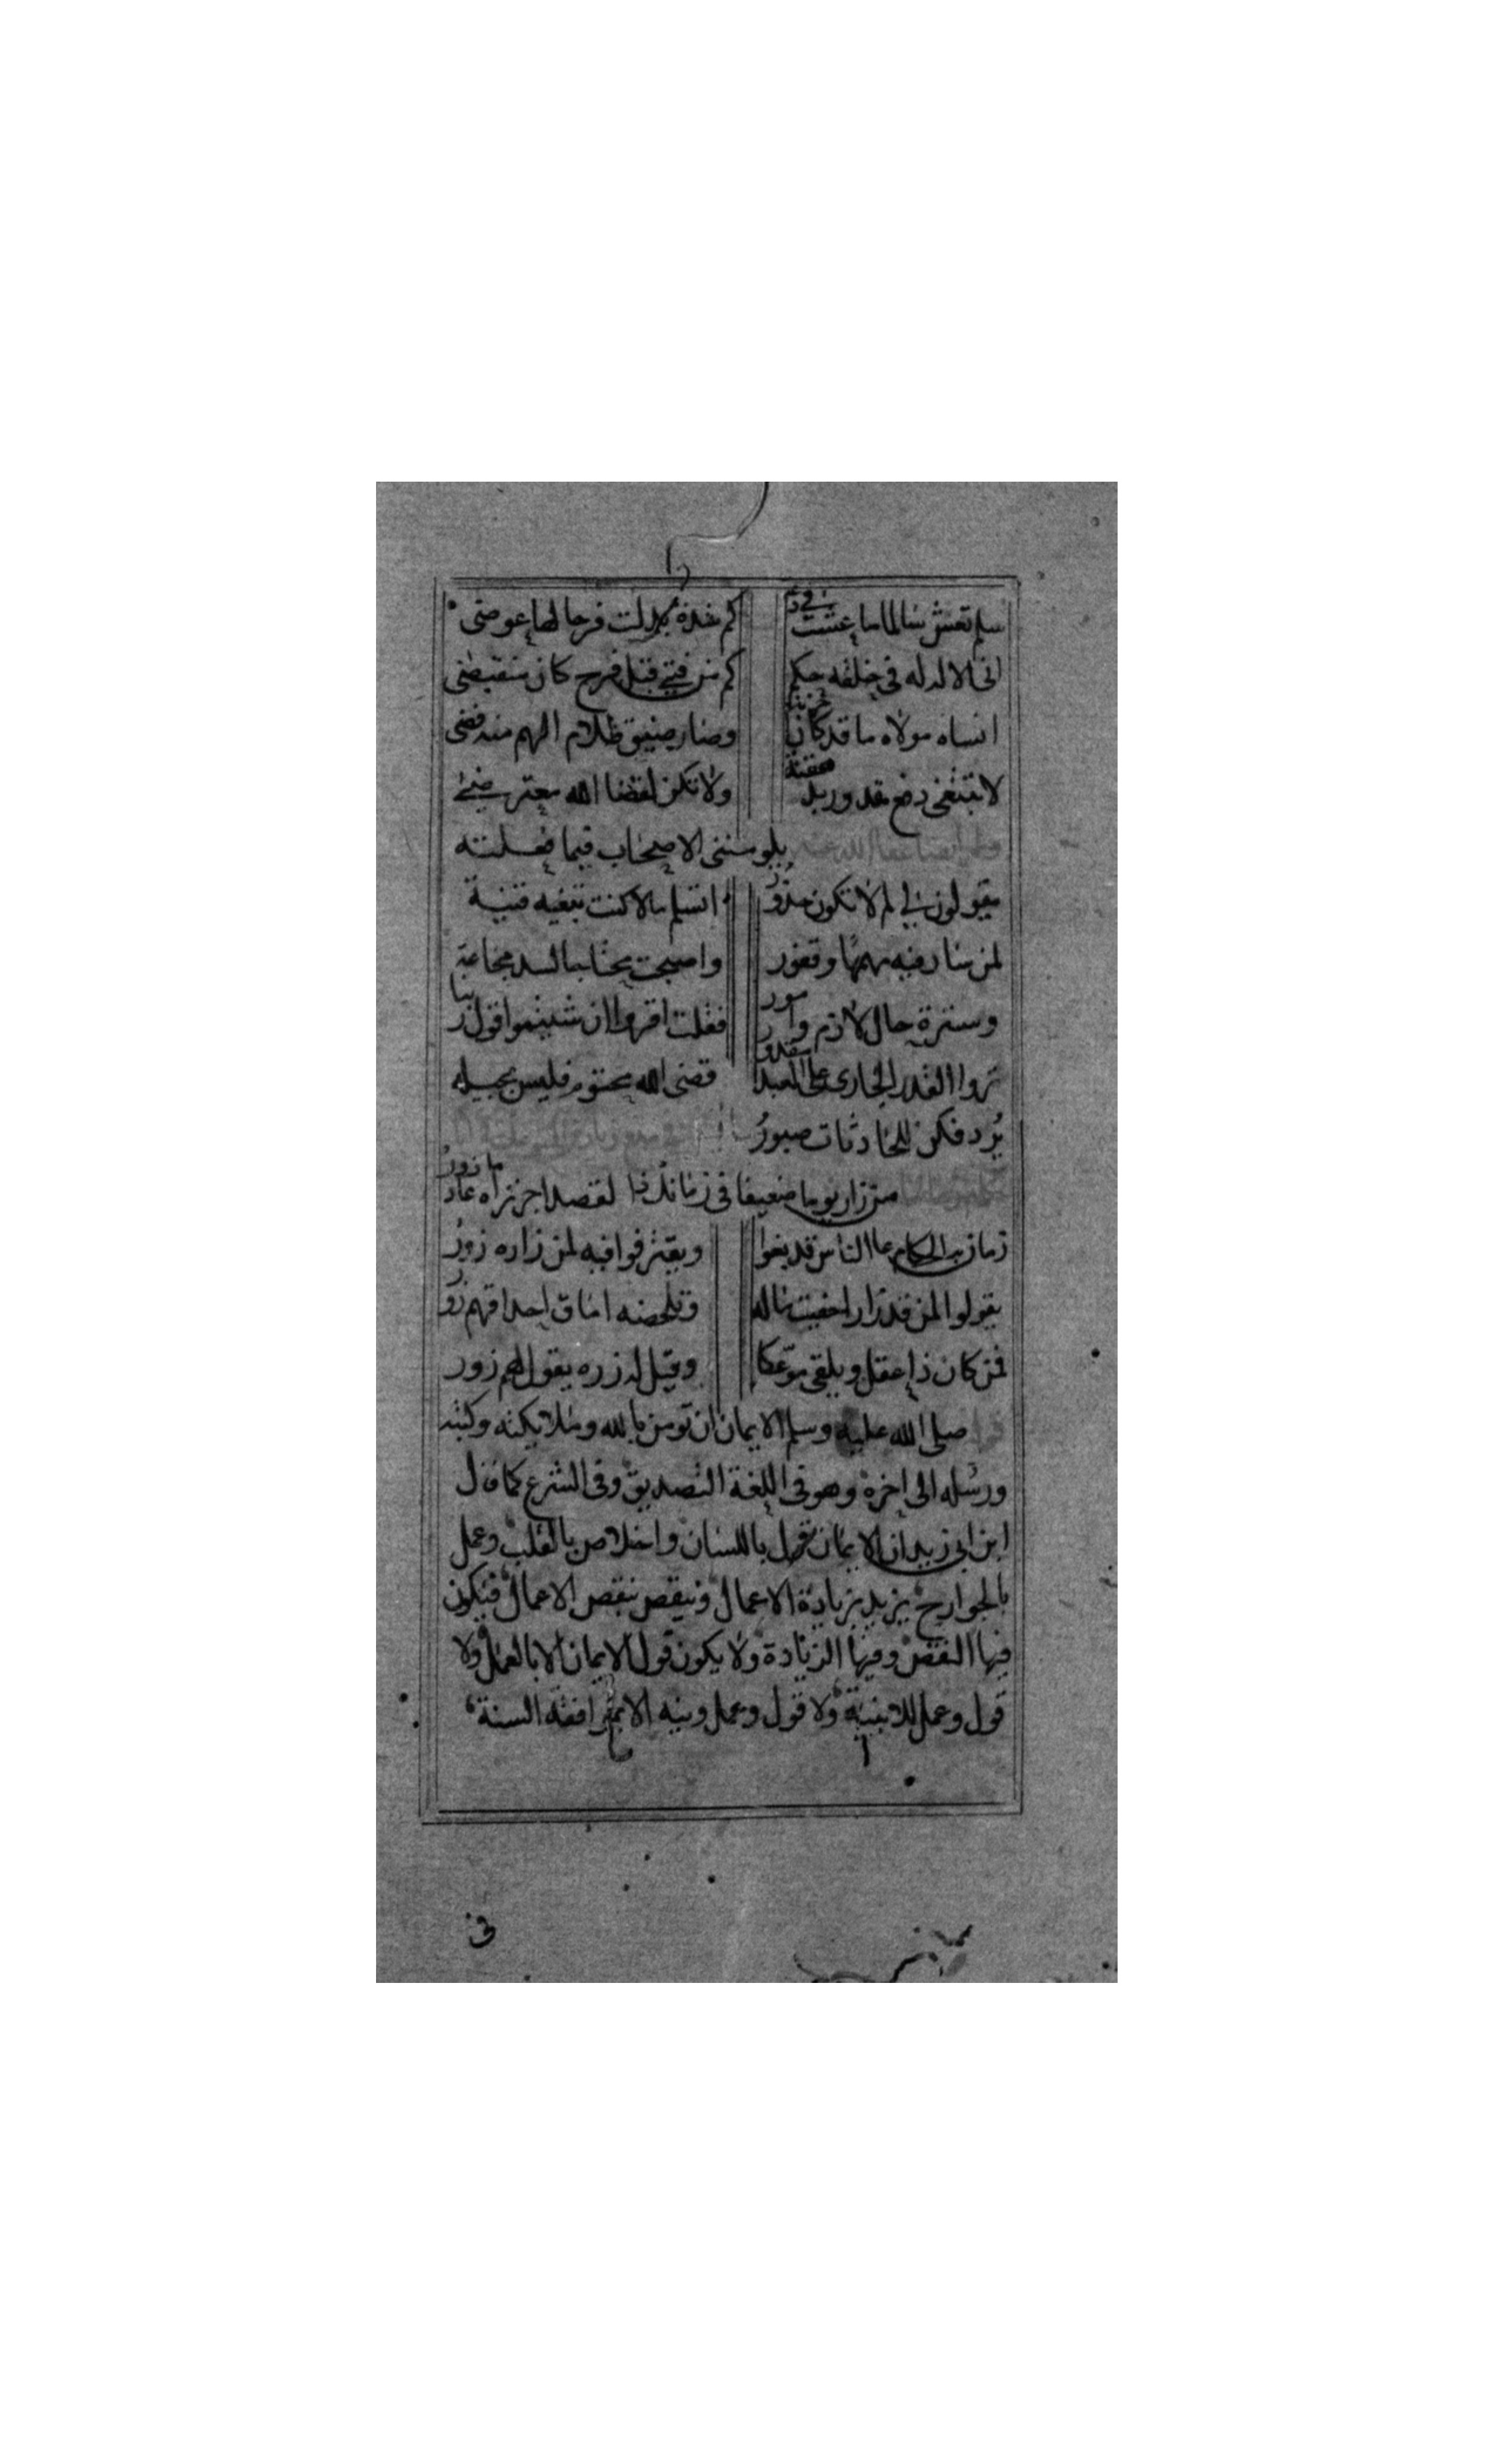 سلم تعش سالما ما عشت في دعة كم شدة بدلت فرحا لها عوضى
انى الاله له فى خلقه حكم كم من فتى قبل فرح كان منقبضى
انساه مولاه ما قد كان حزنه وصار ضيق ظلام الهم منه فضى
لا تبتغى دفع مقدور بلا ولا تكن لقضا الله معترضى
وله ايضا عفا الله عنه يلومنى الاصحاب فيما فعلته
يقولون لي لم لا تكون حذور اتسلم مالا كنت تبغيه قنية
لمن سار فيه مهمها وقفور واصبحت محتاجا لسد مجاعة
وسترة حال لازم وامور فقلت اقروا ان شيتموا قول ربنا
تروا القدر الجارى على العبد مقدور قضى الله محتوم فليس بحيلة
يُرد فكن للحادثات صبورُ
من زار يوما ضعيفا فى زمانك ذا لقصد اجر تراه عاد ما زورُ
زمان به الحكام عالناس قد بغوا وبقيتر فوافيه لمن زاره زورُ
يقولوا لمن قد زار اخفيت ماله وتلحضه اماق احداقهم زور
فمن كان ذا عقل ويلقى موعكا وقيل له زره يقول لهم زور
صلى الله عليه وسلم الايمان ان تومن بالله وملايكته وكتبه
ورسله الى اخره وهو فى اللغة التصديق وفى الشرع كما قال
ابن ابى زيد ان الايمان قول باللسان واخلاص بالقلب وعمل
بالجوارح يزيد بزيادة الاعمال وينقص بنقص الاعمال فيكون
فيها النقص وفيها الزيادة ولا يكون قول الايمان الا بالعمل ولا
قول وعمل الا بنية ولا قول وعمل ونيه الا بموافقة السنة